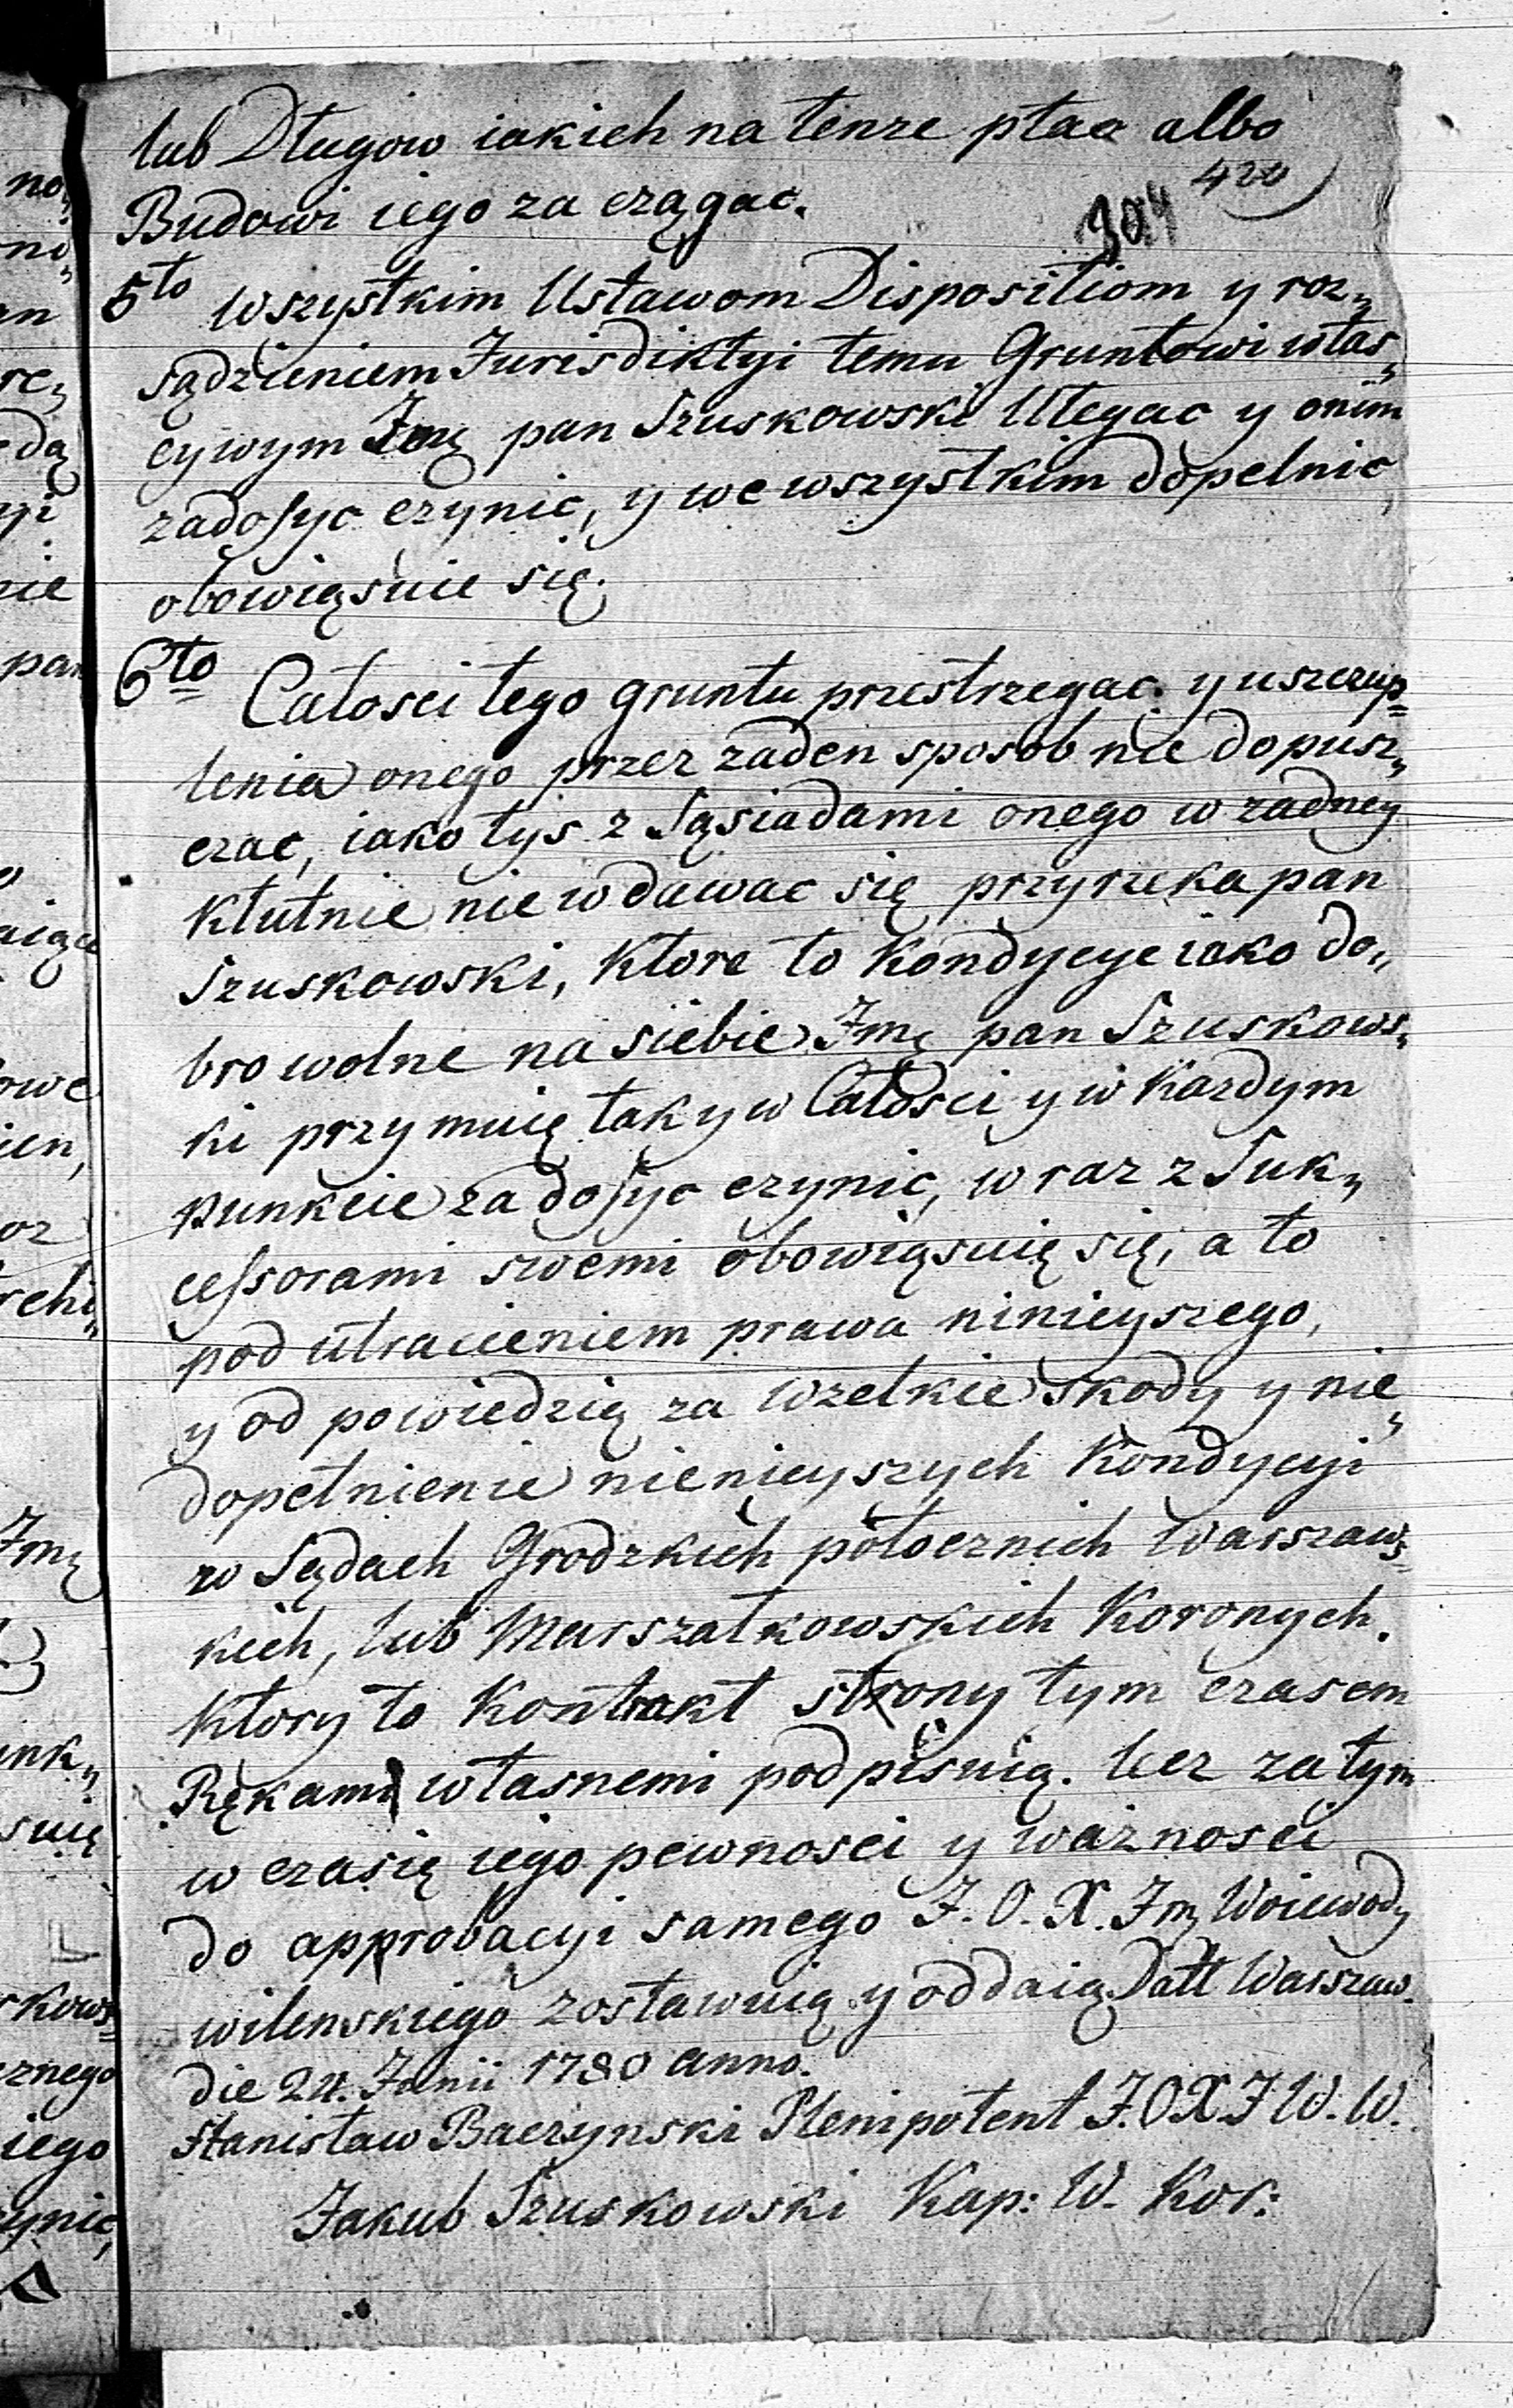 lub Długow iakich na tenze płac albo
420
Budowi iego za czągac.
304
5to Wszystkim Ustawom Dispositiom y roz„
sądzieniem Jurisdiktyi temu Gruntowi włas„
cywym Jmę pan Szuskowski Ulegac y onim
zadosyc czynic, y we wszystkim dopelnic
obowiąsuie się.
6to Całosci tego gruntu przestrzegac. y uszczup=
lenia onego przez zaden sposob nie dopusz„
czac, iako tys z Sąsiadami onego w zadney
Kłutnie nie wdawac się przyrzeka pan
Szuskowski, Ktore to Kondycye iako do„
browolne na siebie Jmę pan Szuskows„
ki przymuię tak y w Całosci y w Kazdym
punkcie zadosyc czynic, wraz z Suk„
cessorami swemi obowiąsuię się, a to
pod utracieniem prawa ninieyszego,
y odpowiedzią za wzelkie skody y nie„
dopełnienie nienieyszych Kondycyi
w Sądach Grodzkich potocznich Warszaws=
kich, lub Marszałkowskich Koronych.
Ktory to Kontrakt strony tym czasem
Rękami własnemi podpisuią. lecz zatym
w czasię iego pewnosci y waznosci
do approbacyi samego J. O. X. Jmę Woiewody
wilenskiego zostawuią y oddaią. Datt Warszaw.
die 24. Junii 1780 anno.
Stanisław Baczynski Plenipotent J.O.X.J W. W.
Jakub Szuskowski Kap: W. Kor: